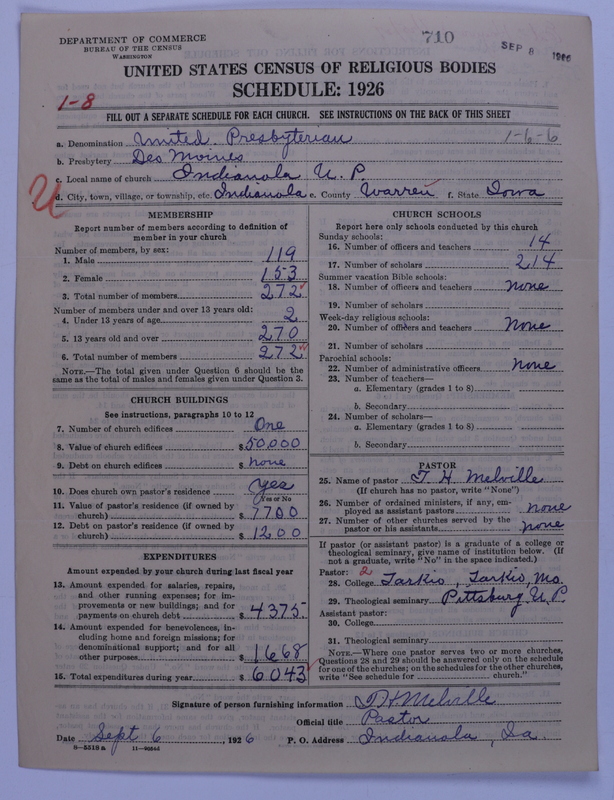 DEPARTMENT OF COMMERCE
BUREAU OF THE CENSUS
WASHINGTON
710
SEP 8 1926
UNITED STATES CENSUS OF RELIGIOUS BODIES
SCHEDULE: 1926
1-8
FILL OUT A SEPARATE SCHEDULE FOR EACH CHURCH. SEE INSTRUCTIONS ON THE BACK OF THIS SHEET
a. Denomination United Presbyterian 1-6-6
b. Presbytery Des Moines
c. Local name of church Indianola U. P.
d. City, town, village, or township, etc. Indianola e. County Warren f. State Iowa
MEMBERSHIP
Report number of members according to definition of
member in your church
Number of members, by sex:
1. Male 119
2. Female 153
3. Total number of members 272
Number of members under and over 13 years old:
4. Under 13 years of age 2
5. 13 years old and over 270
6. Total number of members 272
NOTE.—The total given under Question 6 should be the
same as the total of males and females given under Question 3.
CHURCH BUILDINGS
See instructions, paragraphs 10 to 12
7. Number of church edifices One
8. Value of church edifices $50,000
9. Debt on church edifices $ none
10. Does church own pastor's residence Yes
(Yes or No
11. Value of pastor's residence (if owned by
church) $ 7700
12. Debt on pastor's residence (if owned by
church) $ 1200
EXPENDITURES
Amount expended by your church during last fiscal year
13. Amount expended for salaries, repairs,
and other running expenses; for im-
provements or new buildings; and for
payments on church debt $ 4375.
14. Amount expended for benevolences, in-
cluding home and foreign missions; for
denominational support; and for all
other purposes $ 1668
15. Total expenditures during year $ 6043
CHURCH SCHOOLS
Report here only schools conducted by this church
Sunday schools:
16. Number of officers and teachers 14
17. Number of scholars 214
Summer vacation Bible schools:
18. Number of officers and teachers none
19. Number of scholars
Week-day religious schools:
20. Number of officers and teachers none
21. Number of scholars
Parochial schools:
22. Number of administrative officers none
23. Number of teachers—
a. Elementary (grades 1 to 8)
b. Secondary
24. Number of scholars—
a. Elementary (grades 1 to 8)
b. Secondary
PASTOR
25. Name of pastor T. H. Melville
(If church has no pastor, write "None")
26. Number of ordained ministers, if any, em-
ployed as assistant pastors none
27. Number of other churches served by the
pastor or his assistants none
If pastor (or assistant pastor) is a graduate of a college or
theological seminary, give name of institution below. (If
not a graduate, write "No" in the space indicated.)
Pastor: 2
28. College Tarkio, Tarkio, Mo.
29. Theological seminary Pittsburg U. P.
Assistant pastor:
30. College
31. Theological seminary
NOTE.—Where one pastor serves two or more churches,
Questions 28 and 29 should be answered only on the schedule
for one of the churches; on the schedules for the other churches,
write "See schedule for church."
Signature of person furnishing information T H Melville
Official title Pastor
Date Sept 6, 1926 P. O. Address Indianola, Ia.
8—5518 a